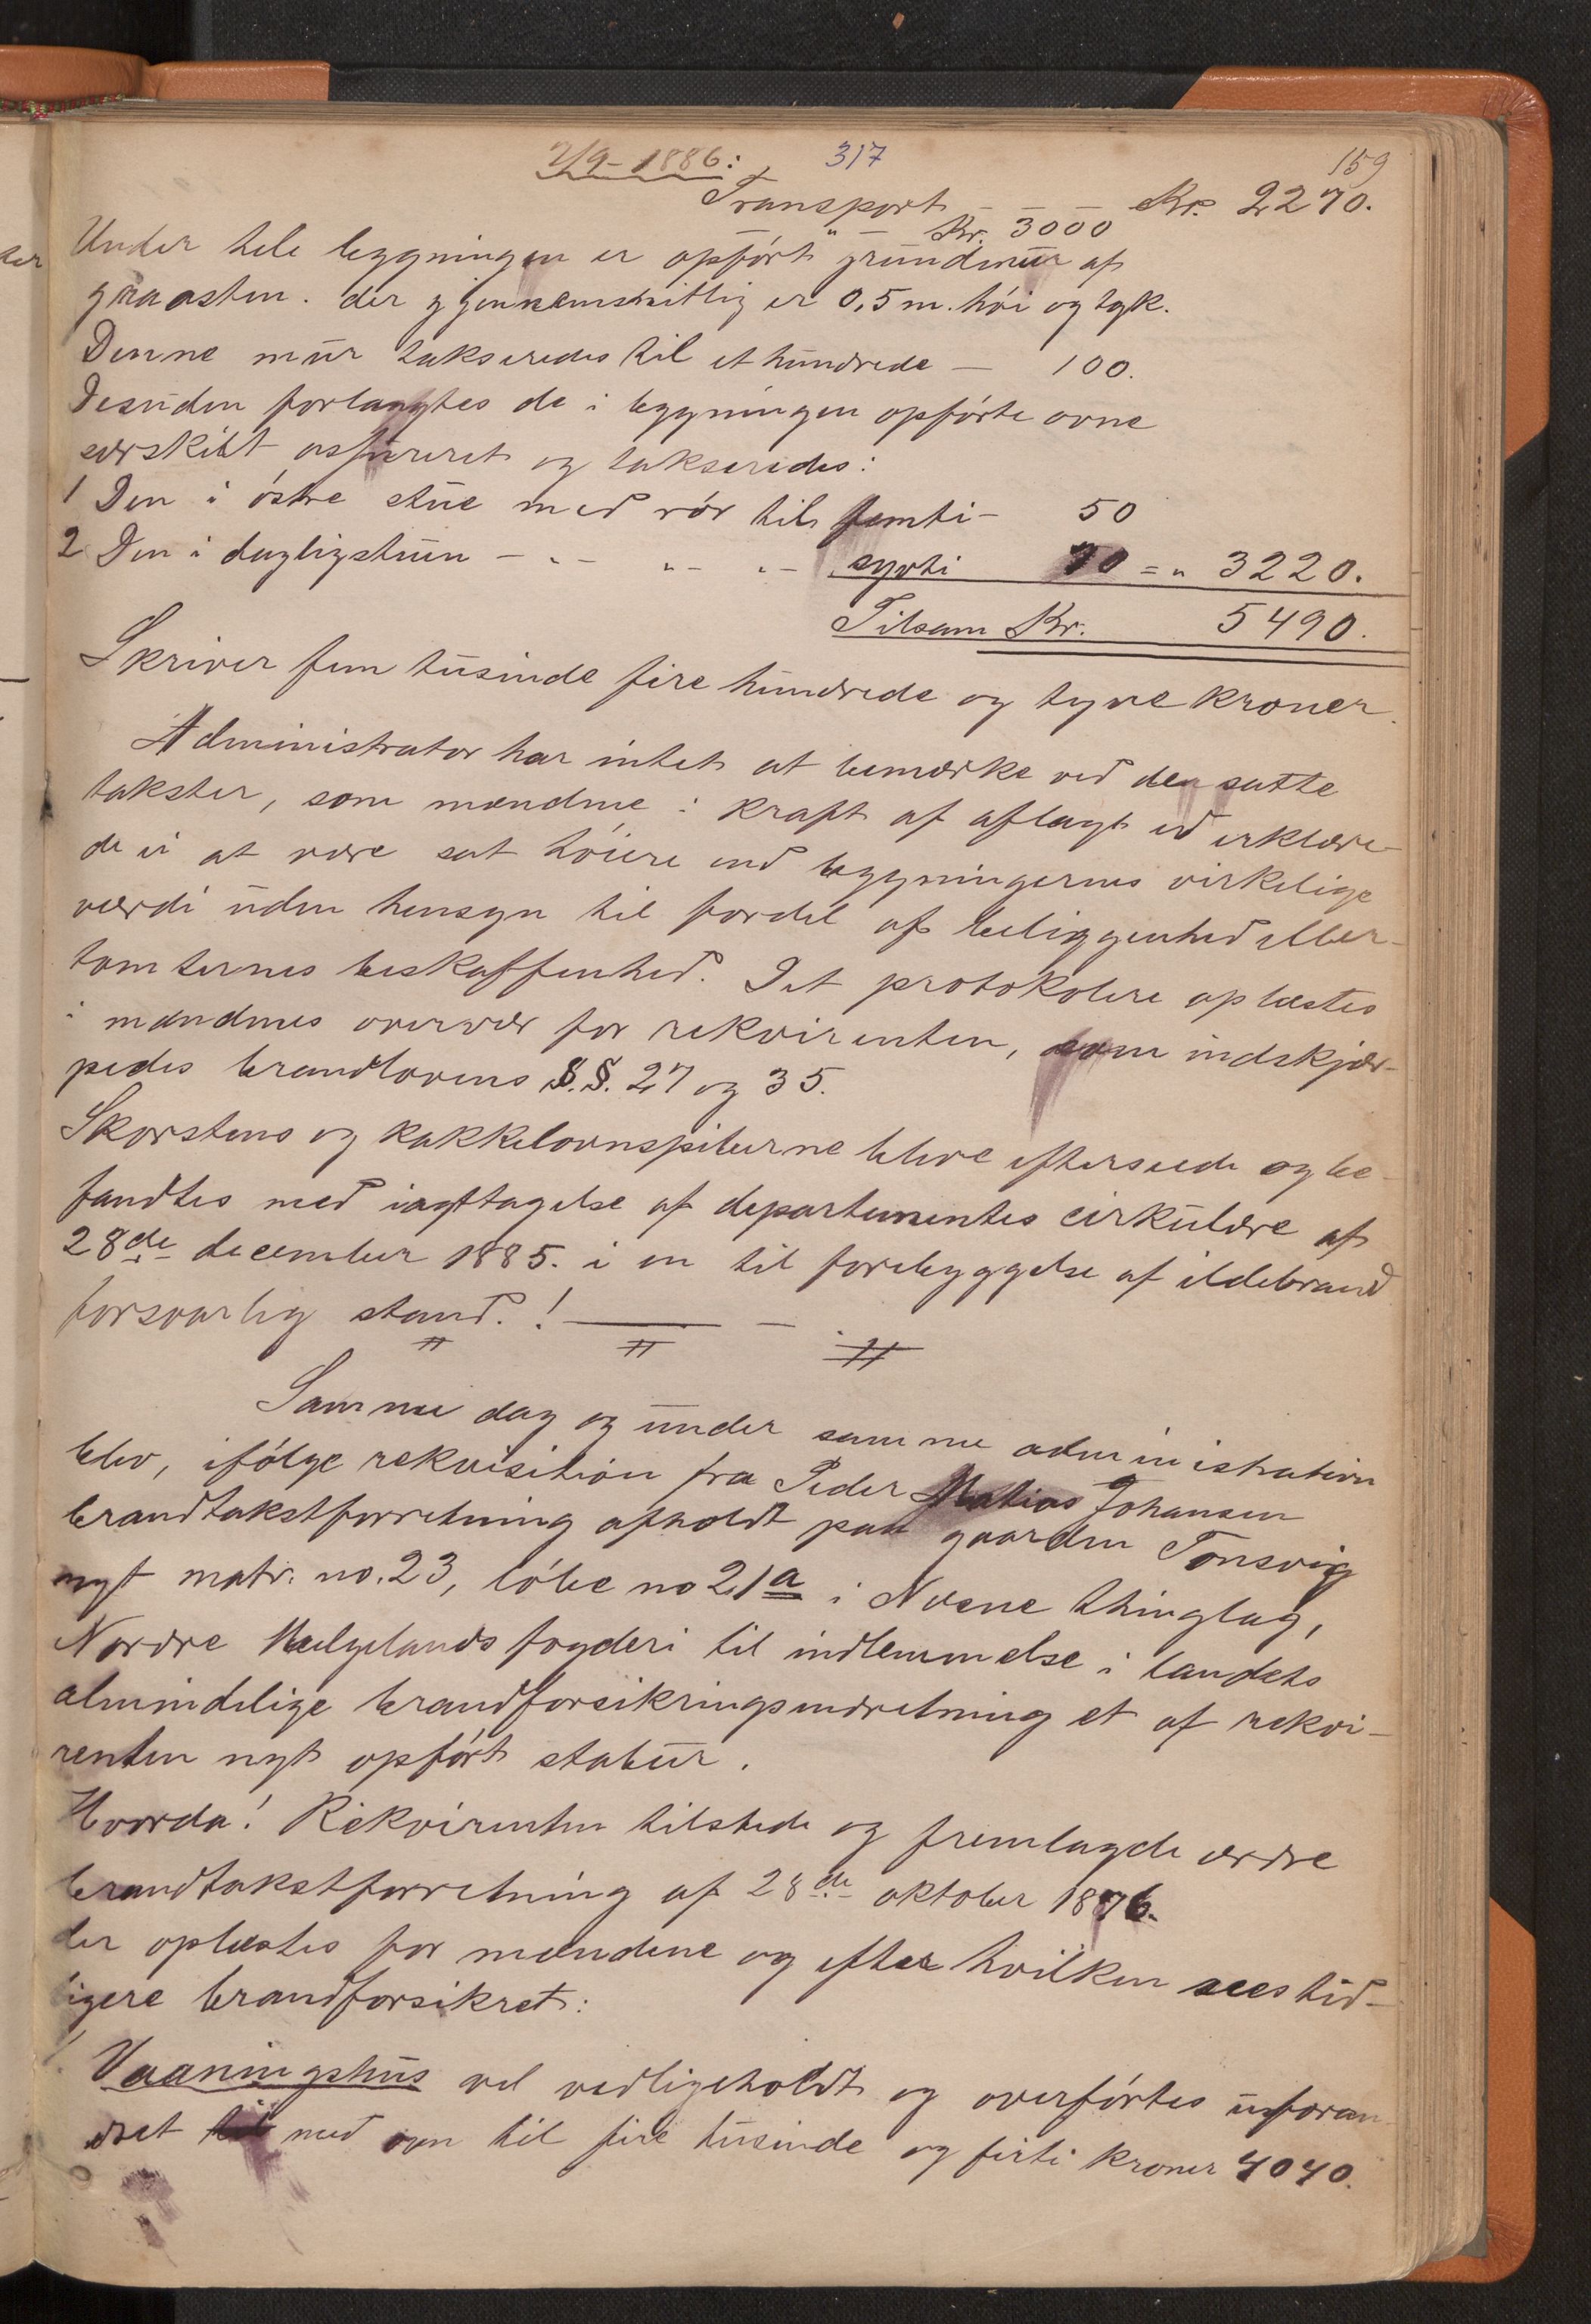 2/9-1886: 317 159
Transport — — Kr. 2270.
" — Kr. 3000
Under hele bygningen er opført grundmur af
graasten. der gjennemsnitlig er 0,5 m. høi og tyk.
Denne mur takseredes til et hundrede — 100.
Desuden forlangtes de i bygningen opførte ovne
særskilt assureret og takseredes:
1 Den i østre stue med rør til femti - 50
2 Den i dagligstuen - " - " - " - sytti 70 = " 3220.
Tilsam Kr. 5490.
Skriver fem tusinde fire hundrede og tyve kroner.
Administrator har intet at bemærke ved den satte
takster, som mændene i kraft af aflagt ed erklære-
de ei at være sat høiere end bygningernes virkelige
værdi uden hensyn til fordel af beliggenhed eller
tomternes beskaffenhed. Det protokolere oplæstes
i mændenes overvær for rekvirenten, som indskjær-
pedes brandlovens §.§. 27 og 35.
Skorstens og kakkelovnspiberne bleve efterseede og be-
fandtes med iagttagelse af departementes cirkulære af
28de december 1885. i en til forebyggelse af ildebrand
forsvarlig stand.! —
Samme dag og under samme administration
blev, ifølge rekvisition fra Peder Matias Johansen
brandtakstforretning afholdt paa gaarden Tonsvig
nyt matr. no. 23, løbe no 21a i Næsne thinglag,
Nordre Helgelands fogderi til indlemmelse i landets
almindelige brandforsikringsindretning et af rekvi-
renten nyt opført stabur.
Hvorda! Rekvirenten tilstede og fremlagde ældre
brandtakstforretning af 28de oktober 1876.
der oplæstes for mændene og efter hvilken sees tid-
ligere brandforsikret:
1. Vaaningshus vel vedligeholdt og overførtes uforan-
dret med ovn til fire tusinde og firti kroner 4040.